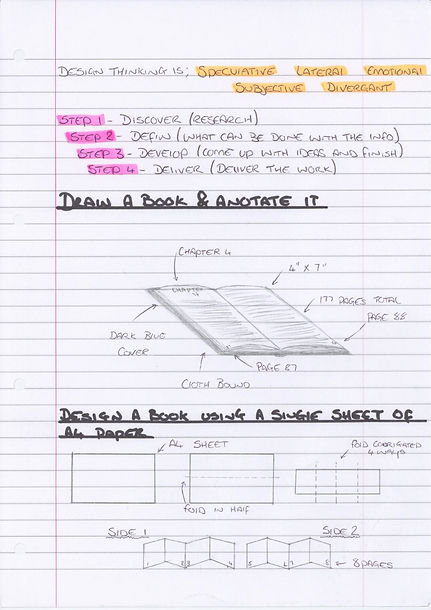 DESIGN THINKING IS; SPECULATIVE LATERAL EMOTIONAL
SUBJECTIVE DIVERGANT
STEP 1 - DISCOVER (RESEARCH)
STEP 2 - DEFIN (WHAT CAN BE DONE WITH THE INFO)
STEP 3 - DEVELOP (COME UP WITH IDEAS AND FINISH)
STEP 4 - DELIVER (DELIVER THE WORK)
DRAW A BOOK & ANOTATE IT
CHAPTER 4
4" X 7"
CHAPTER
177 PAGES TOTAL
PAGE 88
DARK BLUE
COVER
PAGE 87
CLOTH BOUND
DESIGN A BOOK USING A SINGLE SHEET OF
A4 PAPER
A4 SHEET
FOLD CORRIGATED
4 WAYS
FOLD IN HALF
SIDE 1
SIDE 2
8 PAGES